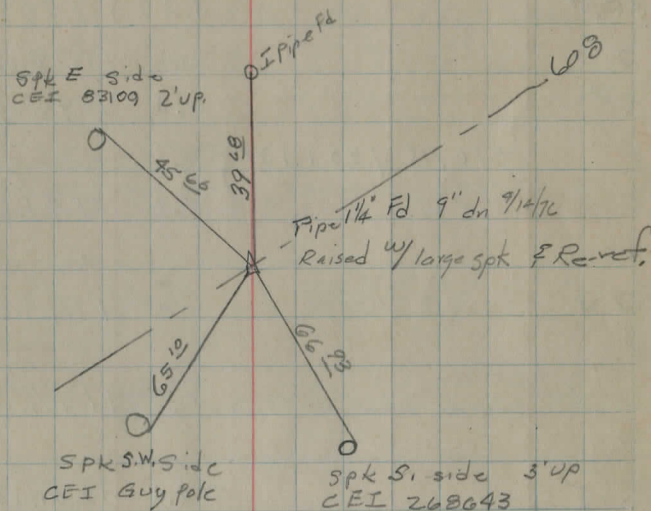 I Pipe Fd
Spk E side
CEI 83109 2' up.
608
45 66
39 68
Pipe 1¼" Fd 9" dn 9/14/76
Raised w/ large spk & Re-ref.
65 10
66 93
Spk S.W. Side
CEI Guy Pole
Spk S. side 3' up
CEI 268643